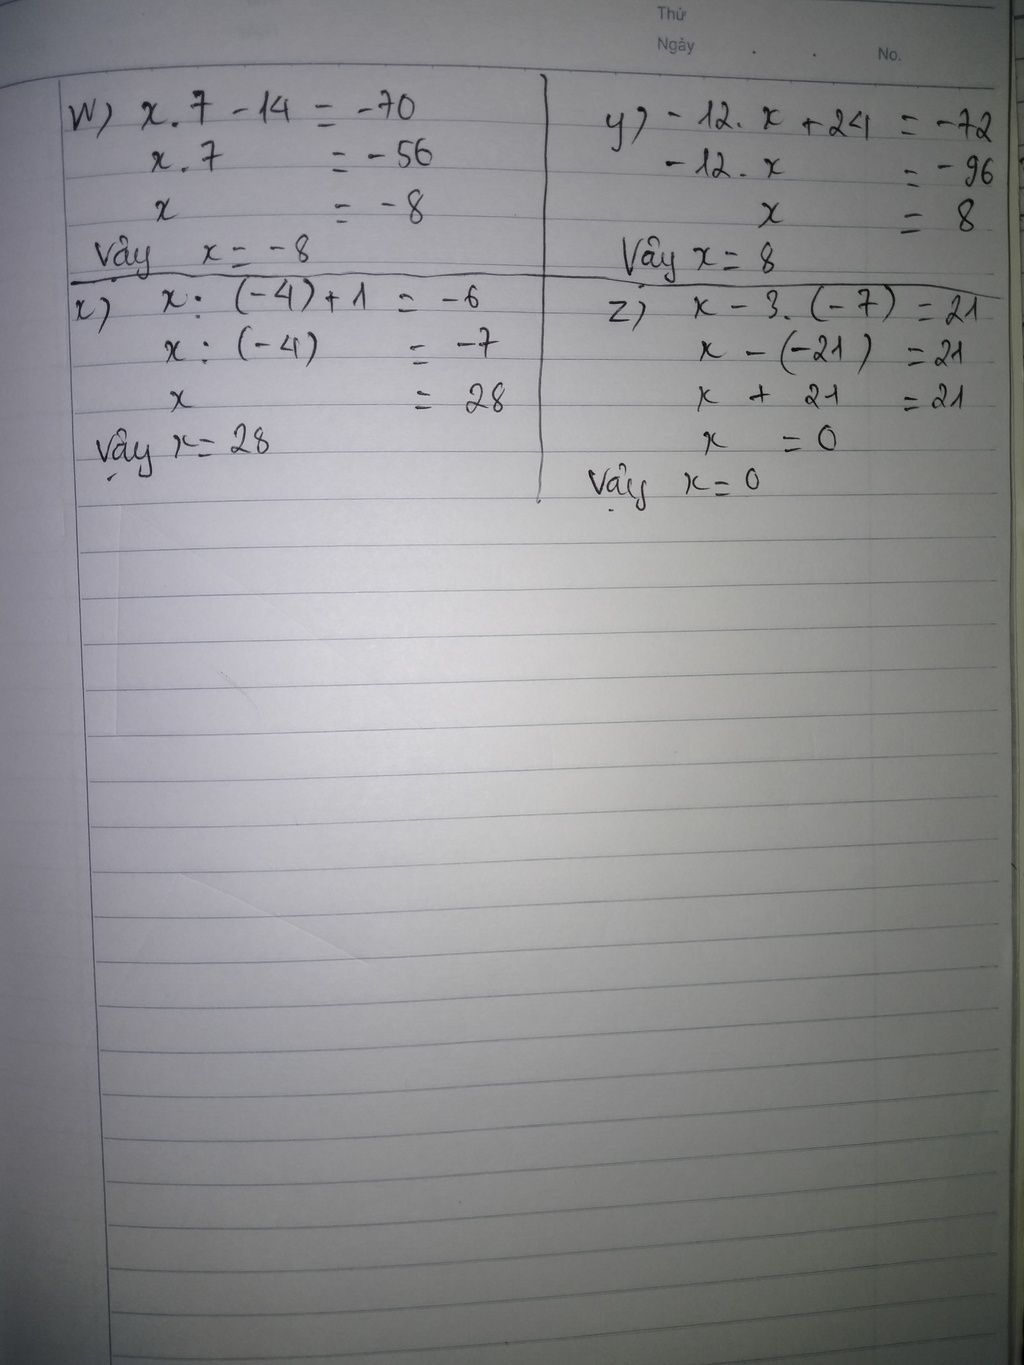 Thứ
Ngày . . No.
W) x . 7 - 14 = -70
x . 7 = -56
x = -8
Vậy x = -8
x) x : (-4) + 1 = -6
x : (-4) = -7
x = 28
Vậy x = 28
y) -12 . x + 24 = -72
-12 . x = -96
x = 8
Vậy x = 8
z) x - 3 . (-7) = 21
x - (-21) = 21
x + 21 = 21
x = 0
Vậy x = 0